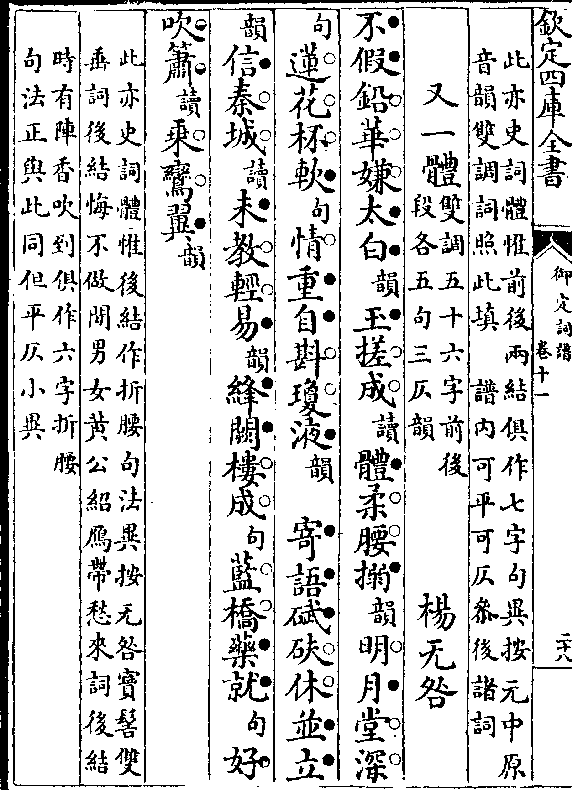 欽定四庫全書
御定詞譜
卷十一
二十八
此亦史詞體惟前後兩結俱作七字句異按元中原
音韻雙調詞照此填　譜内可平可仄參後諸詞
又一體
雙調五十六字前後
段各五句三仄韻
楊无咎
不假鉛華嫌太白韻玉搓成讀體柔腰搦韻明月堂深
句蓮花杯軟句情重自斟瓊液韻　寄語碔砆休並立
韻信秦城讀未教輕易韻絳闕樓成句藍橋藥就句好
吹簫讀乘鸞翼韻
此亦史詞體惟後結作折腰句法異按无咎寶髻雙
垂詞後結悔不做閒男女黄公紹鴈帶愁來詞後結
時有陣香吹到俱作六字折腰
句法正與此同但平仄小異